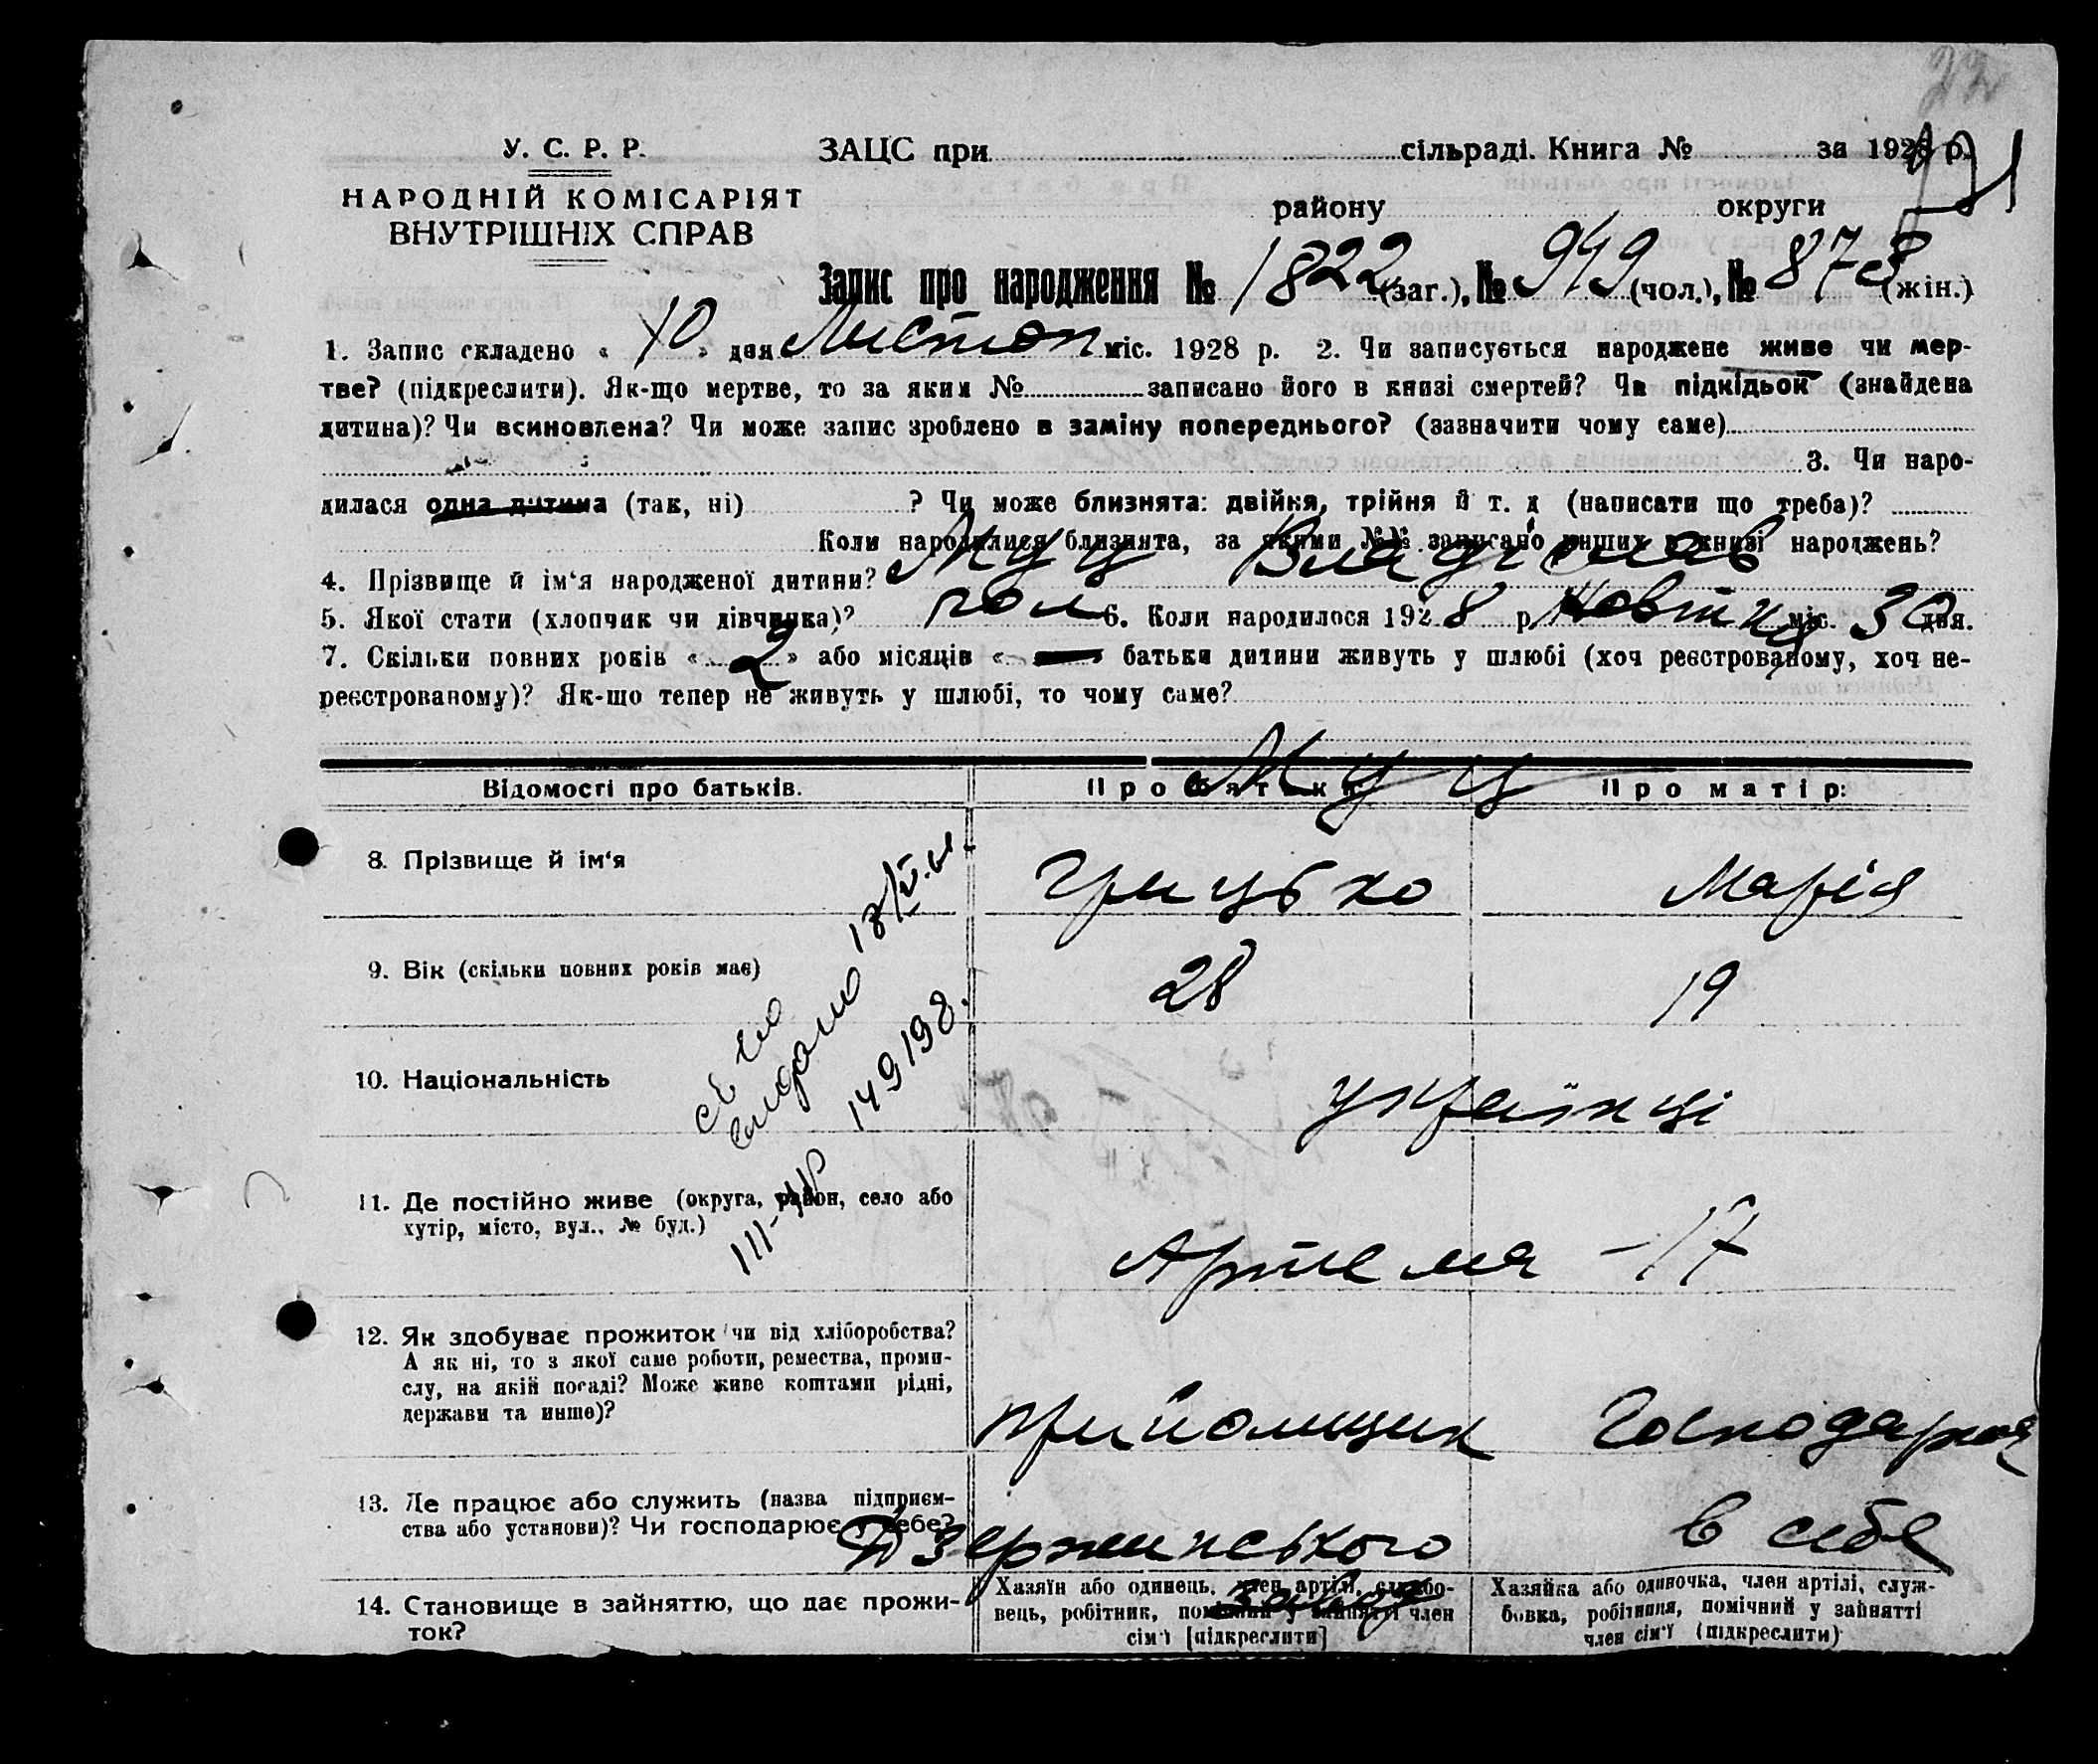 22
У. С. Р. Р.
ЗАЦС при сільраді. Книга № за 1928 р.
НАРОДНІЙ КОМІСАРІЯТ
ВНУТРІШНІХ СПРАВ
району округи
Запис про народження № 1822 (заг.), № 949 (чол.), № 873 (жін.)
1. Запис складено « 10 » дня Листоп міс. 1928 р. 2. Чи записується народжене живе чи мер-
тве? (підкреслити). Як-що мертве, то за яким № записано його в книзі смертей? Чи підкідьок (знайдена
дитина)? Чи всиновлена? Чи може запис зроблено в заміну попереднього? (зазначити чому саме)
3. Чи наро-
дилася одна дитина (так, ні) ? Чи може близнята: двійня, трійня й т. д (написати що треба)?
Коли народилися близнята, за якими №№ записано инших в книзі народжень?
4. Прізвище й ім'я народженої дитини? Муц Владіслав
5. Якої стати (хлопчик чи дівчинка)? чол 6. Коли народилося 1928 р Жовтня міс. 30 дня.
7. Скільки повних років « 2 » або місяців « » батьки дитини живуть у шлюбі (хоч реєстрованому, хоч не-
реєстрованому)? Як-що тепер не живуть у шлюбі, то чому саме?
Відомості про батьків. Про батька Про матір:
Муц
8. Прізвище й ім'я Грицько Марія
9. Вік (скільки повних років має) 28 19
10. Національність українці
св. во
видано 18/V.
III-УР 149198.
11. Де постійно живе (округа, район, село або
хутір, місто, вул., № буд.) Артема - 17
12. Як здобуває прожиток чи від хліборобства?
А як ні, то з якої саме роботи, ремества, проми-
слу, на якій посаді? Може живе коштами рідні,
держави та инше)? прийомщик Господарює
13. Де працює або служить (назва підприєм-
ства або установи)? Чи господарює в себе? Дзержинського в себе
завод
14. Становище в зайняттю, що дає прожи-
ток?
Хазяїн або одинець, член артілі, службо-
вець, робітник, помічний у зайнятті член
сім'ї [підкреслити]
Хазяйка або одиночка, член артілі, служ-
бовка, робітниця, помічний у зайнятті
член сім'ї (підкреслити)